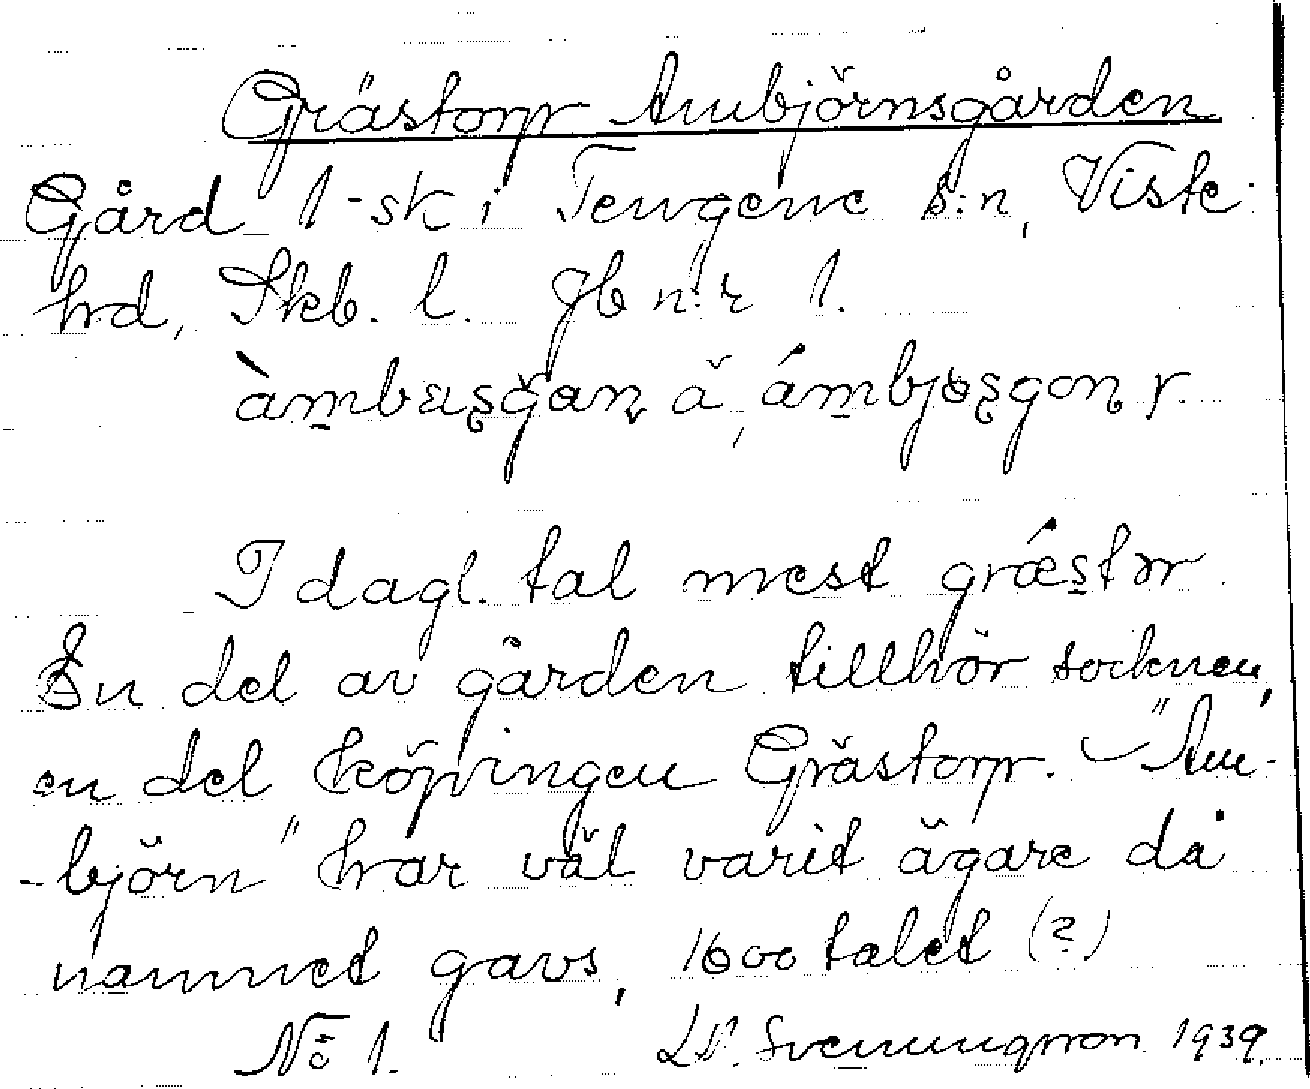 Grästorp Ambjörnsgården
Gård 1-sk i Tengene s:n, Viste
hrd, Skb. l. Jb n:r 1.
I dagl. tal mest græstɔr.
En del av gården tillhör socknen,
en del köpingen Grästorp. – "Am-
-björn" har väl varit ägare då
namnet gavs, 1600 talet (?)
No 1. Svenungsson 1939.